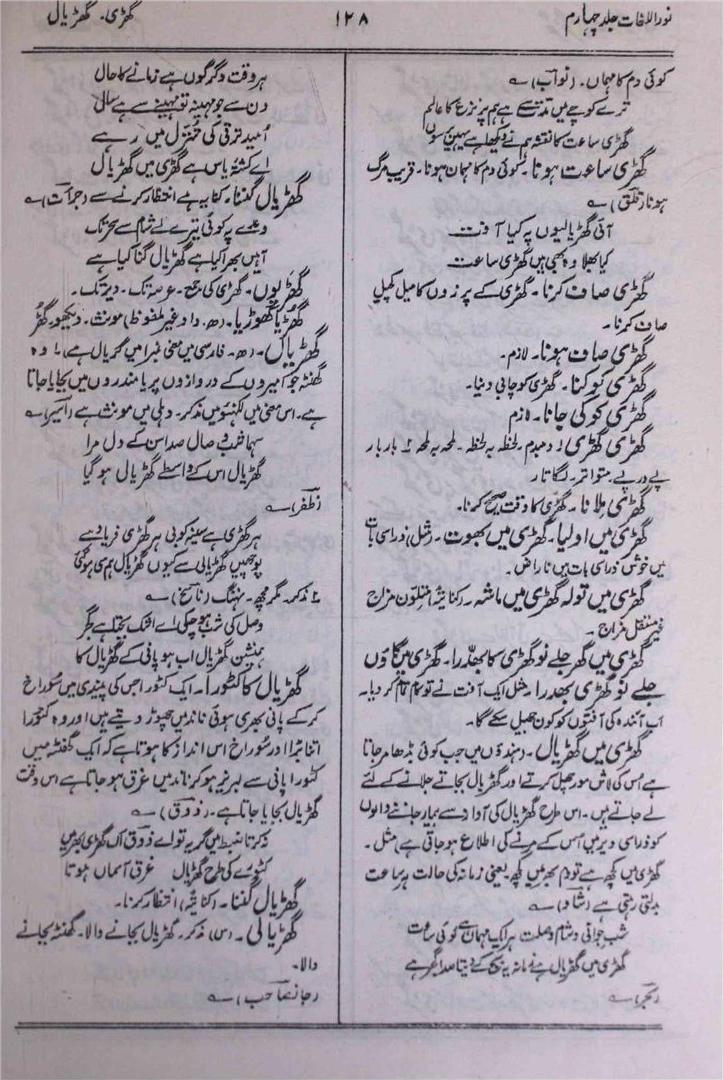 نور اللغات جلد چہارم
۱۲۸
گھڑی۔ گھڑیال
کوئی دم کا مہماں۔ (نواب) ؎
ترے کوچے میں مدت سے ہے ہم پر نزع کا عالم
گھڑی ساعت کا نقشہ ہم نے دیکھا ہے یہیں
گھڑی ساعت ہونا۔ کوئی دم کا مہمان ہونا۔ قریب مرگ
ہونا (قلق) ؎
آئی گھڑیالیوں پہ کیا آفت
کیا بھلا وہ بھی ہیں گھڑی ساعت
گھڑی صاف کرنا۔ گھڑی کے پرزوں کا میل کچیل
صاف کرنا۔
گھڑی صاف ہونا۔ لازم۔
گھڑی کوکنا۔ گھڑی کو چابی دینا۔
گھڑی کوکی جانا۔ لازم
گھڑی گھڑی۔ دمبدم۔ لحظہ بہ لحظہ۔ لمحہ بہ لمحہ ۲ بار بار
پے در پے۔ متواتر۔ لگاتار
گھڑی ملانا۔ گھڑی کا وقت صحیح کرنا۔
گھڑی میں اولیا۔ گھڑی میں بھوت۔ (مثل) ذراسی بات
میں خوش ذراسی بات میں ناراض۔
گھڑی میں تولہ گھڑی میں ماشہ۔ (کنایۃً) متلون مزاج
غیر مستقل مزاج۔
گھڑی میں گھر جلے نو گھڑی کا بھدرا۔ گھڑی میں گاؤں
جلے نو گھڑی بھدرا۔ مثل ایک آفت نے تو کام تمام کر دیا۔
اب آئندہ کی آفتوں کو کون جھیل سکے گا۔
گھڑی میں گھڑیال۔ (ہندوؤں میں جب کوئی بڈھا مرجاتا
ہے اُس کی لاش مورچھل کرتے اور گھڑیال بجاتے جلانے کے لئے
لے جاتے ہیں۔ اس طرح گھڑیال کی آواز سے بیمار جاننے والوں
کو ذراسی دیر میں اُس کے مرنے کی اطلاع ہو جاتی ہے) مثل۔
گھڑی میں کچھ ہے تو دم بھر میں کچھ۔ یعنی زمانہ کی حالت ہر ساعت
بدلتی رہتی ہے (شاد) ؎
شب جوانی و شام وصلت ہر ایک مہماں ہے کوئی ساعت
گھڑی میں گھڑیال ہے زمانہ یہ بج کے دیتا صدا گجر ہے
(بحر) ؎
ہر وقت دگرگوں ہے زمانے کا حال
دن سے جو مہینہ تو مہینے سے ہے سال
اُمید ترقی کی تنزل میں رہے
اے کشتۂ یاس ہے گھڑی میں گھڑیال
گھڑیال گننا۔ کنایہ ہے انتظار کرنے سے (جرأت) ؎
وعدے پہ کوئی تیرے لے شام سے سحر تک
آہیں بھرا کیا ہے گھڑیال گنا کیا ہے
گھڑیوں۔ گھڑی کی جمع۔ عرصہ تک۔ دیر تک۔
گھڑیا گھوڑیا۔ (ھ۔ واو غیر ملفوظ) مونث۔ دیکھو۔ گھڑ
گھڑیال۔ (ھ۔ فارسی میں معنی نمبر ۱ میں گریال ہے) ۱ وہ
گھنٹہ جو امیروں کے دروازوں پر یا مندروں میں بجایا جاتا
ہے۔ اس معنی میں لکھنؤ میں مذکر۔ دہلی میں مونث ہے (اسیر) ؎
سہا ضرب صال صدا سن کے دل مرا
گھڑیال اس کے واسطے گھڑیالی ہو گیا
(ظفر) ؎
ہر گھڑی ہے سینہ کوبی ہر گھڑی فریاد ہے
پوچھیں گھڑیالی سے کیوں گھڑیال ہم ہی ہوگئی
۲ مذکر۔ مگر مچھ۔ نہنگ (ناسخ) ؎
وصل کی شب ہو چکی اے اشک بجتا ہے گجر
ہمنشیں گھڑیال اب ہو پانی کے گھڑیال کا
گھڑیال کا کٹورا۔ ایک کٹورا جس کی پیندی میں سوراخ
کر کے پانی بھری ہوئی ناند میں چھوڑ دیتے ہیں اور وہ کٹورا
اتنا بڑا اور سوراخ اس انداز کا ہوتا ہے کہ ایک گھنٹہ میں
کٹورا پانی سے لبریز ہو کر ناند میں غرق ہو جاتا ہے اس وقت
گھڑیال بجایا جاتا ہے۔ (ذوق) ؎
نہ کرتا ضبط میں گریہ تو اے ذوق اک گھڑی بھر میں
کٹورے کی طرح گھڑیال غرق آسماں ہوتا
گھڑیال گننا۔ (کنایۃً) انتظار کرنا۔
گھڑیالی۔ مذکر۔ گھڑیال بجانے والا۔ گھنٹہ بجانے
والا۔
(جانصاحب) ؎